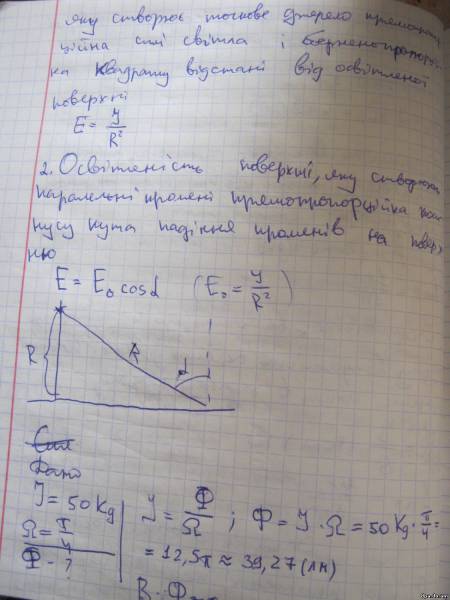 яку створює точкове джерело прямопропор
ційна силі світла і обернено пропорцій
на квадрату відстані від освітленої
поверхні
E = J/R²
2. Освітеність поверхні, яку створюють
паралельні промені прямопропорційна коси
нусу кута падіння променів на поверх
ню
E = E₀ cosα (E₀ = J/R²)
R R α
Дано
J = 50 Kg
Ω = π/4
Ф - ?
J = Ф/Ω ; Ф = J · Ω = 50 Kg · π/4 =
= 12,5π ≈ 39,27 (лм)